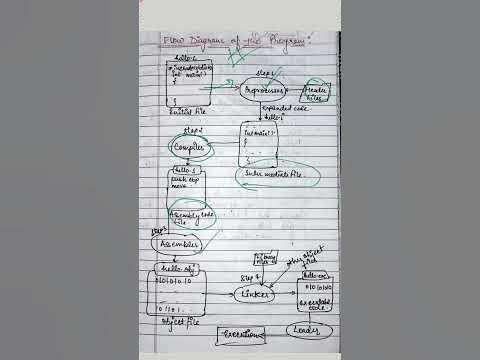 Flow Diagram of the Program:
hello.c
#include<stdio.h>
int main()
{
}
Initial file
step 1
Preprocessor
Header
Files
expanded code
hello.i
int main()
{
}
Inter mediate file
step 2
Compiler
hello.s
push ebp
move
Assembly code
file
step 3
Assembler
hello.obj
01010110
01101.
object file
Library
files
other object
files
Step 4
Linker
hello.exe
executable
code
Loader
Execution